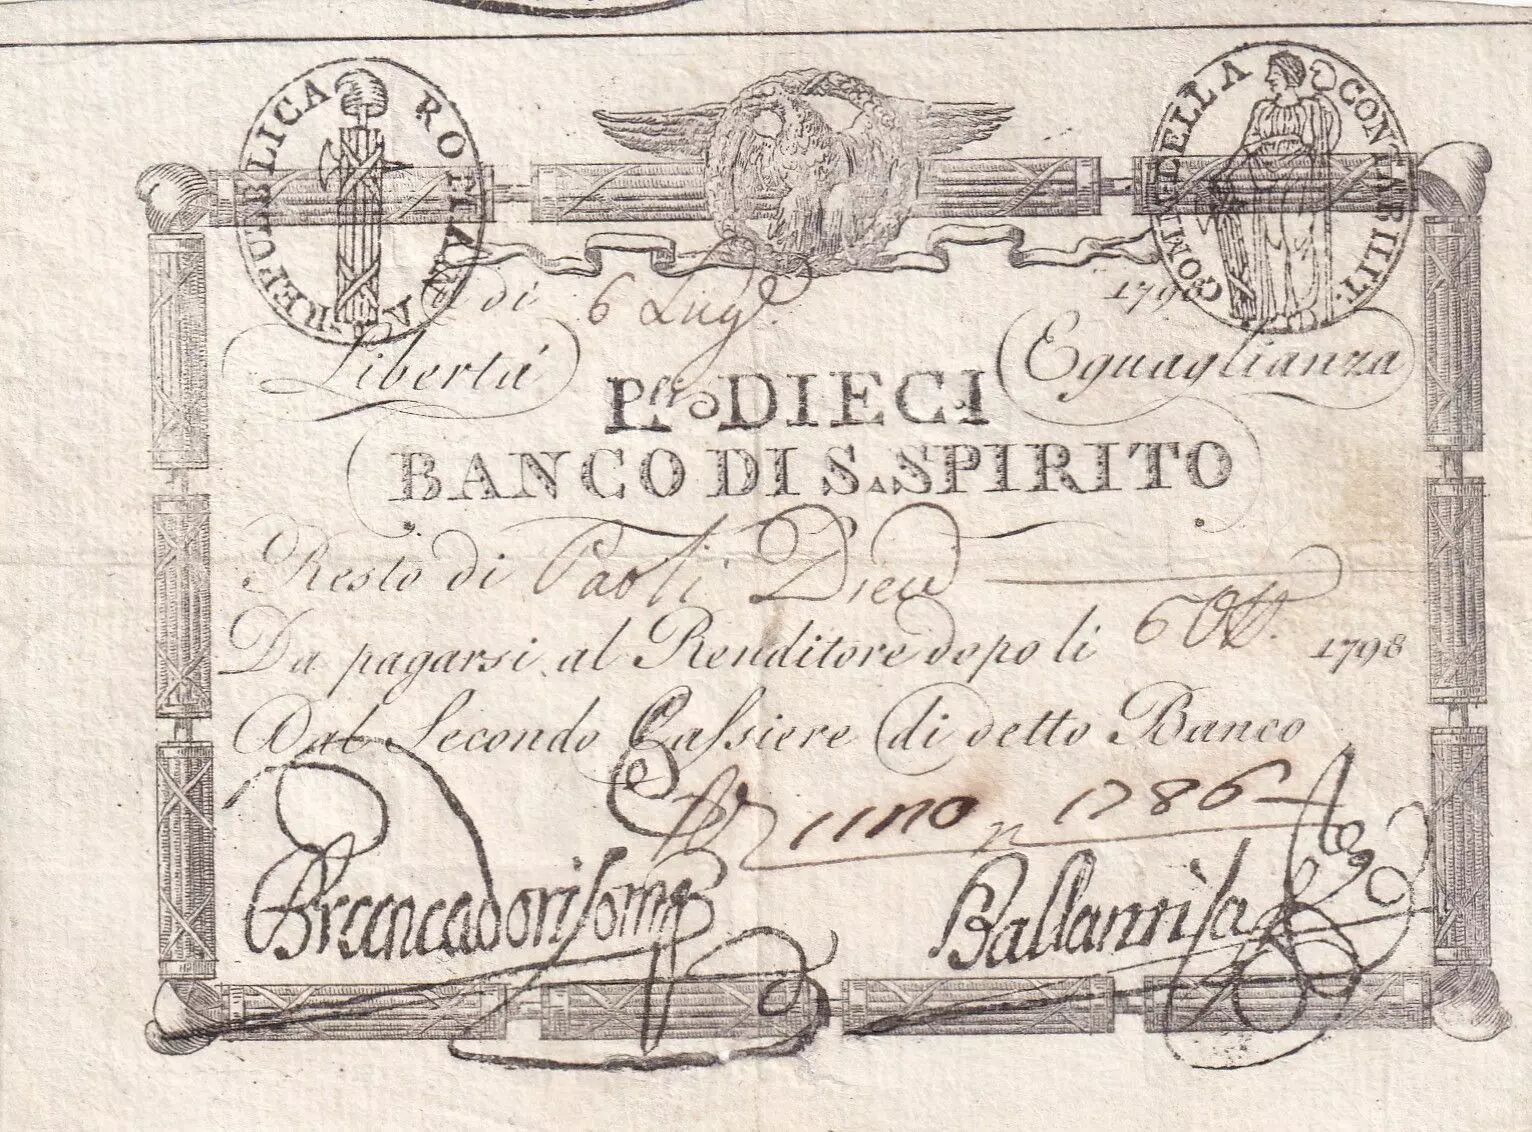 REPUBBLICA ROMANA
COMP. DELLA CONTABILIT.
A di 6 Lug.e 1798
Libertá Eguaglianza
P.li DIECI
BANCO DI S. SPIRITO
Resto di Paoli Dieci
Da pagarsi al Renditore dopo li 6 Ott. 1798
Dal Secondo Cassiere di detto Banco
1786